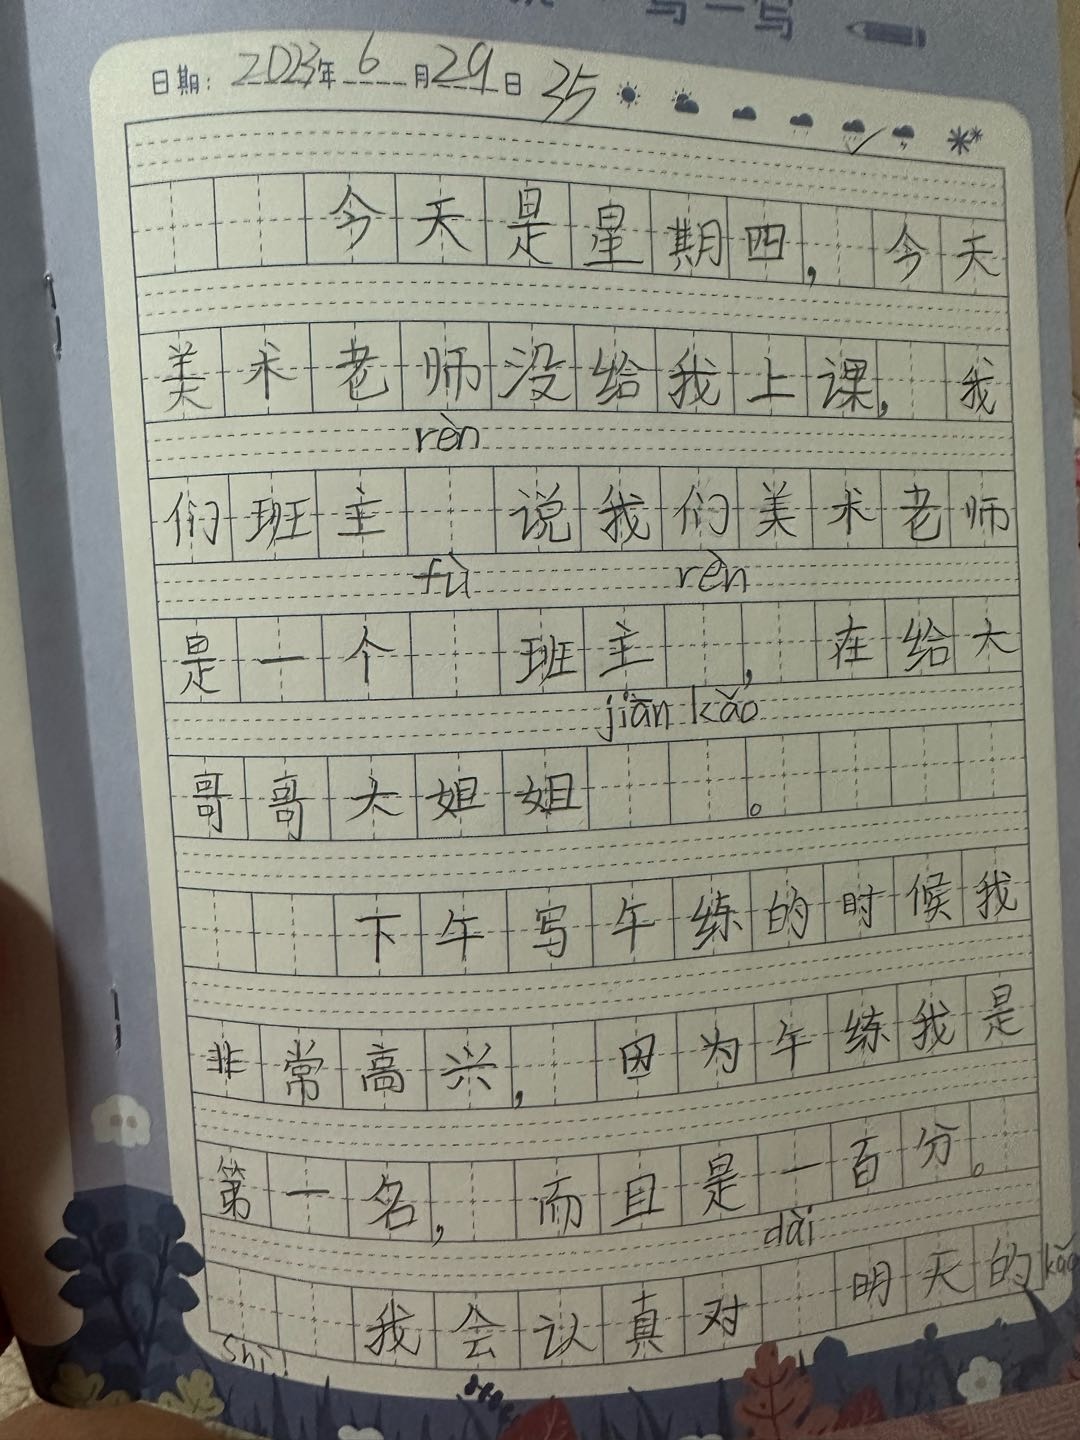 写一写
日期：2023年6月29日 35
今天是星期四，今天
美术老师没给我上课，我
rèn
们班主 说我们美术老师
fù rèn
是一个 班主 ，在给大
jiān kǎo
哥哥大姐姐 。
下午写午练的时候我
非常高兴，因为午练我是
第一名，而且是一百分。
dài
我会认真对 明天的kǎo
shì！